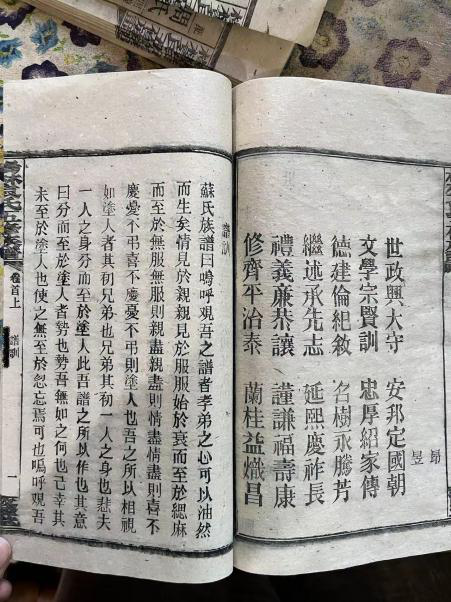 昂
昱
世政興大守 安邦定國朝
文學宗賢訓 忠厚紹家傳
德建倫紀敘 名樹永騰芳
繼述承先志 延熙慶祚長
禮義廉恭讓 謹謙福壽康
修齊平治泰 蘭桂益熾昌
譜訓
蘇氏族譜曰嗚呼觀吾之譜者孝弟之心可以油然
而生矣情見於親親見於服服始於衰而至於緦麻
而至於無服無服則親盡親盡則情盡情盡則喜不
慶憂不弔喜不慶憂不弔則塗人也吾之所以相視
如塗人者其初兄弟也兄弟其初一人之身也悲夫
一人之身分而至於塗人此吾譜之所以作也其意
曰分而至於塗人者勢也勢吾無如之何也已幸其
未至於塗人也使之無至於忽忘焉可也嗚呼觀吾
卷首上
譜訓
一